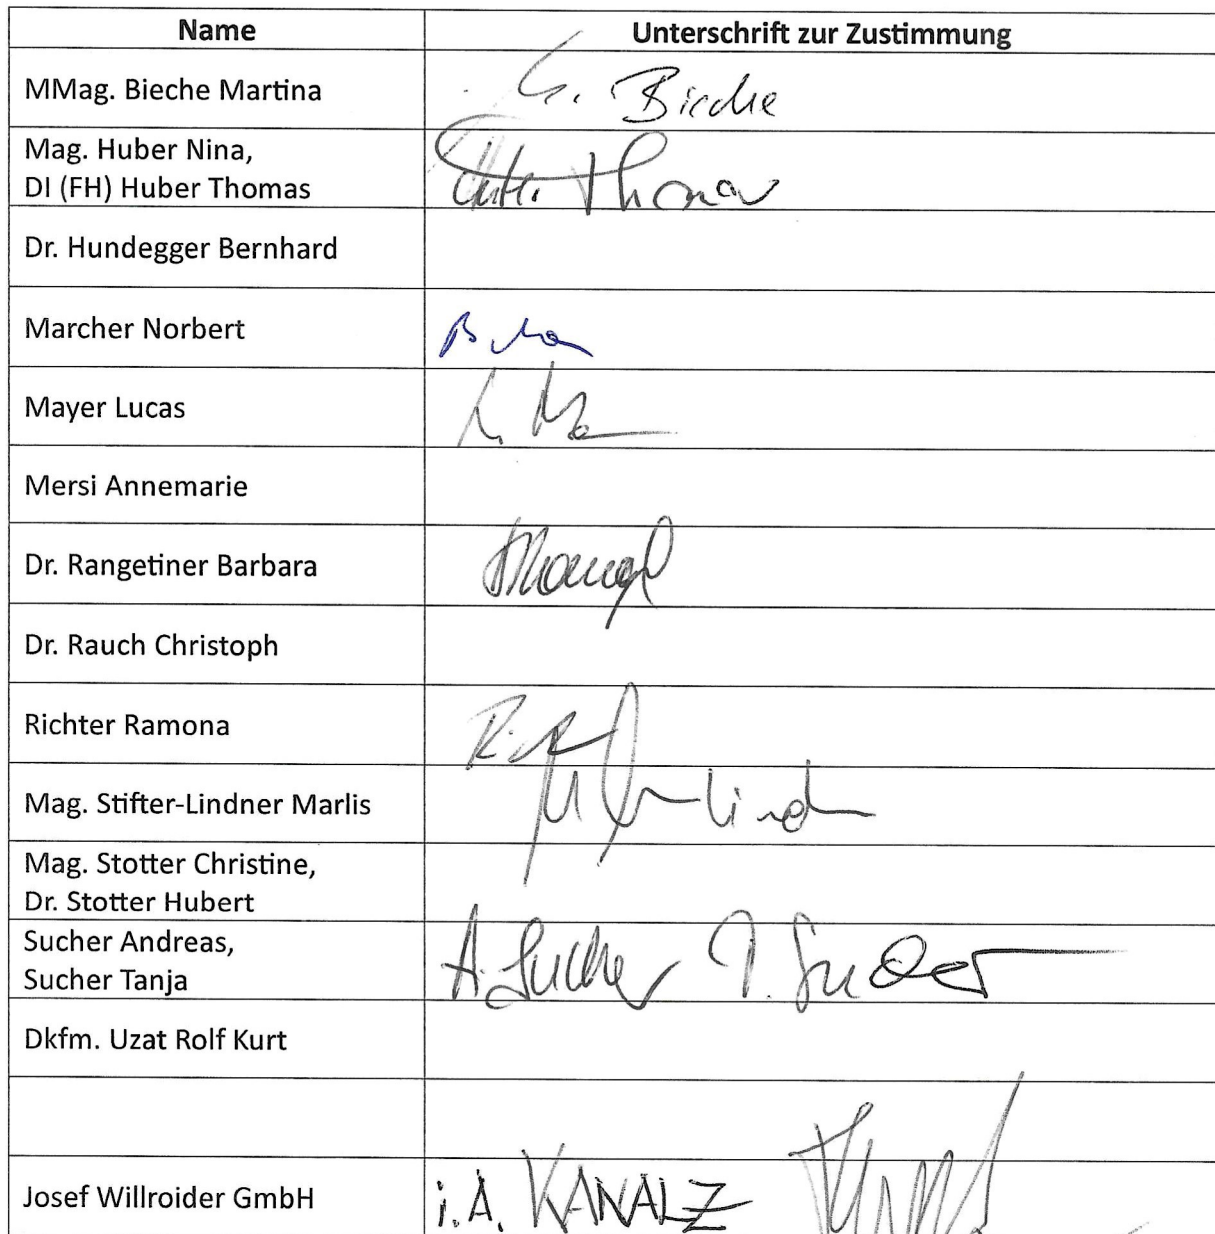 Name
Unterschrift zur Zustimmung
MMag. Bieche Martina
Bieche
Mag. Huber Nina,
DI (FH) Huber Thomas
Thomas
Dr. Hundegger Bernhard
Marcher Norbert
Mayer Lucas
Mersi Annemarie
Dr. Rangetiner Barbara
Dr. Rauch Christoph
Richter Ramona
Mag. Stifter-Lindner Marlis
Mag. Stotter Christine,
Dr. Stotter Hubert
Sucher Andreas,
Sucher Tanja
A. Sucher T. Sucher
Dkfm. Uzat Rolf Kurt
Josef Willroider GmbH
i.A. KANALZ